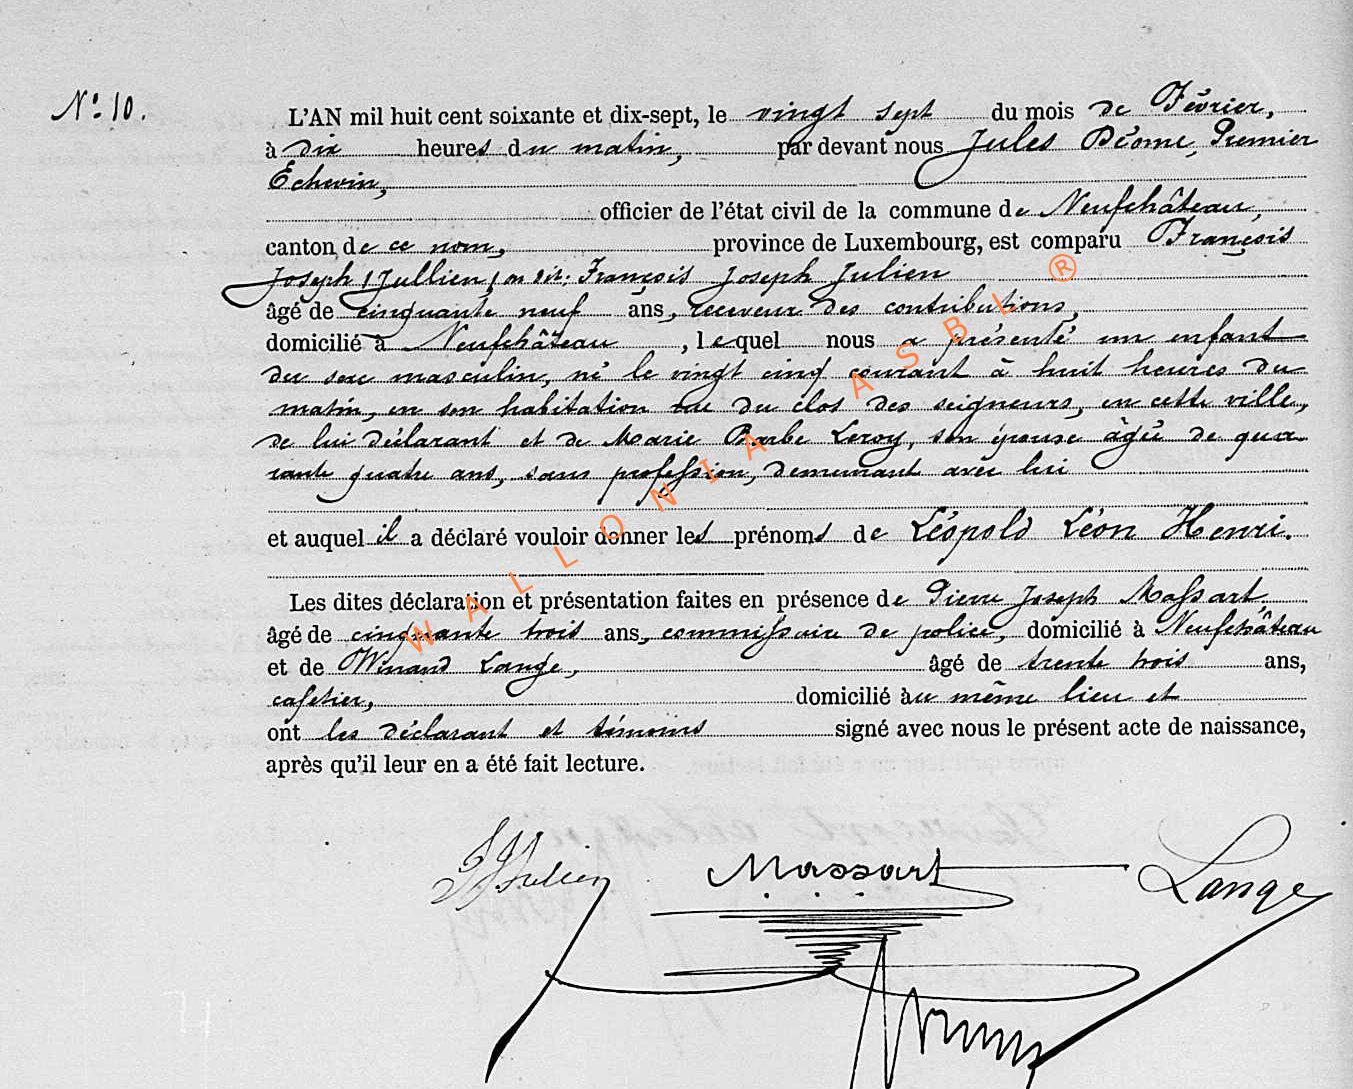 N° 10.
L'AN mil huit cent soixante et dix-sept, le vingt sept du mois de Février,
à dix heures du matin, par devant nous Jules Déome, Premier
Echevin,
officier de l'état civil de la commune de Neufchâteau,
canton de ce nom, province de Luxembourg, est comparu François
Joseph (Jullien) ou dit: François Joseph Julien
âgé de cinquante neuf ans, receveur des contributions,
domicilié à Neufchâteau, lequel nous a présenté un enfant
du sexe masculin, né le vingt cinq courant à huit heures du
matin, en son habitation rue du clos des seigneurs, en cette ville,
de lui déclarant et de Marie Barbe Leroy, son épouse âgée de qua-
rante quatre ans, sans profession, demeurant avec lui
et auquel il a déclaré vouloir donner les prénoms de Léopold Léon Henri.
Les dites déclaration et présentation faites en présence de Pierre Joseph Massart,
âgé de cinquante trois ans, commissaire de police, domicilié à Neufchâteau
et de Winand Lange, âgé de trente trois ans,
cafetier, domicilié au même lieu et
ont les déclarant et témoins signé avec nous le présent acte de naissance,
après qu'il leur en a été fait lecture.
Julien Massart Lange
WALLONIA ASBL ®